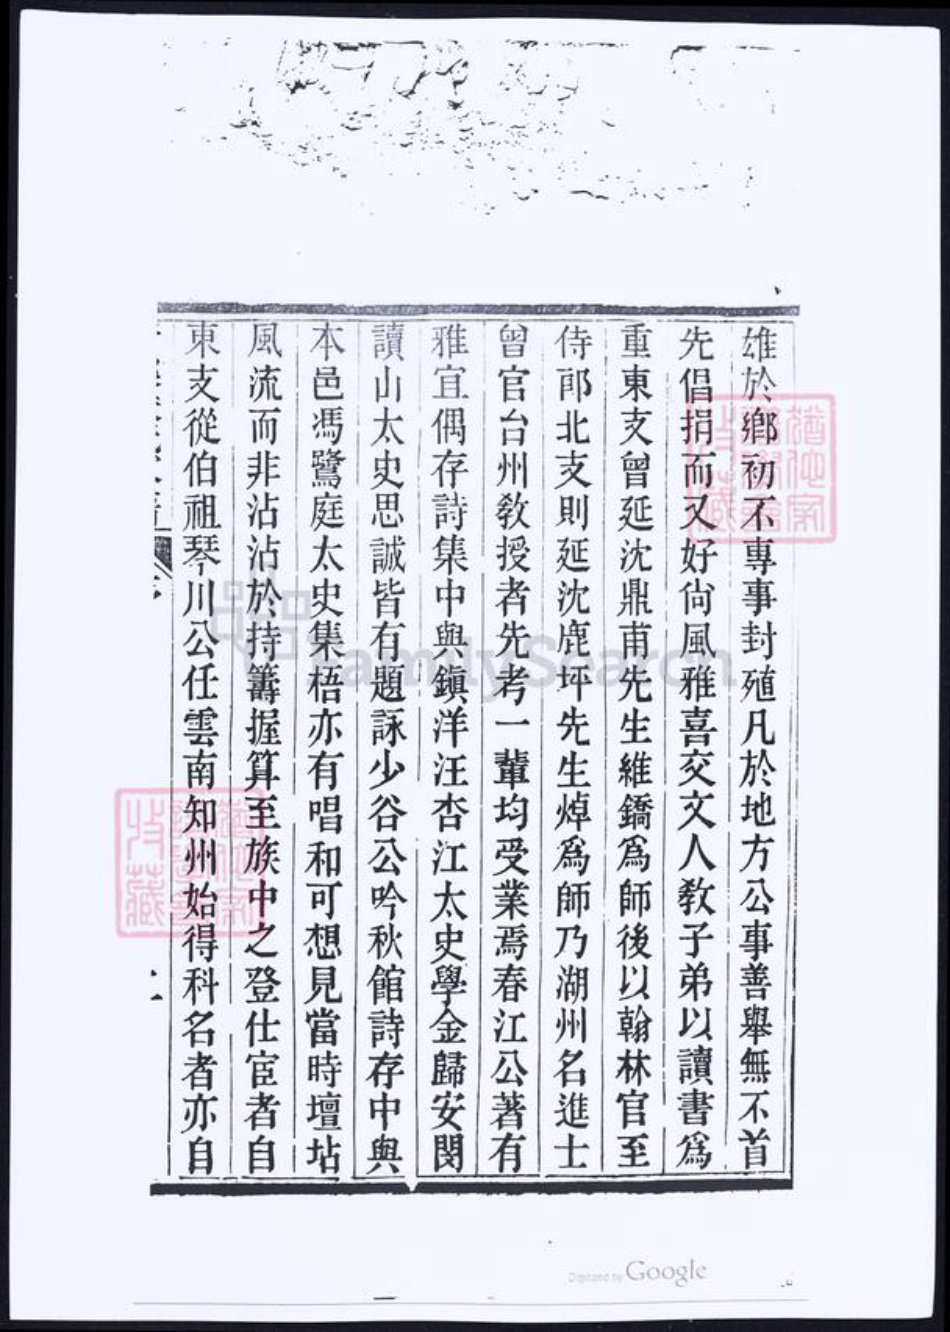 雄於鄉初不專事封殖凡於地方公事善舉無不首
先倡捐而又好尙風雅喜交文人敎子弟以讀書爲
重東支曾延沈鼎甫先生維鐈爲師後以翰林官至
侍郎北支則延沈鹿坪先生焯爲師乃湖州名進士
曾官台州敎授者先考一輩均受業焉春江公著有
雅宜偶存詩集中與鎭洋汪杏江太史學金歸安閔
讀山太史思誠皆有題詠少谷公吟秋館詩存中與
本邑馮鷺庭太史集梧亦有唱和可想見當時壇坫
風流而非沾沾於持籌握算至族中之登仕宦者自
東支從伯祖琴川公任雲南知州始得科名者亦自
FamilySearch
Digitized by Google